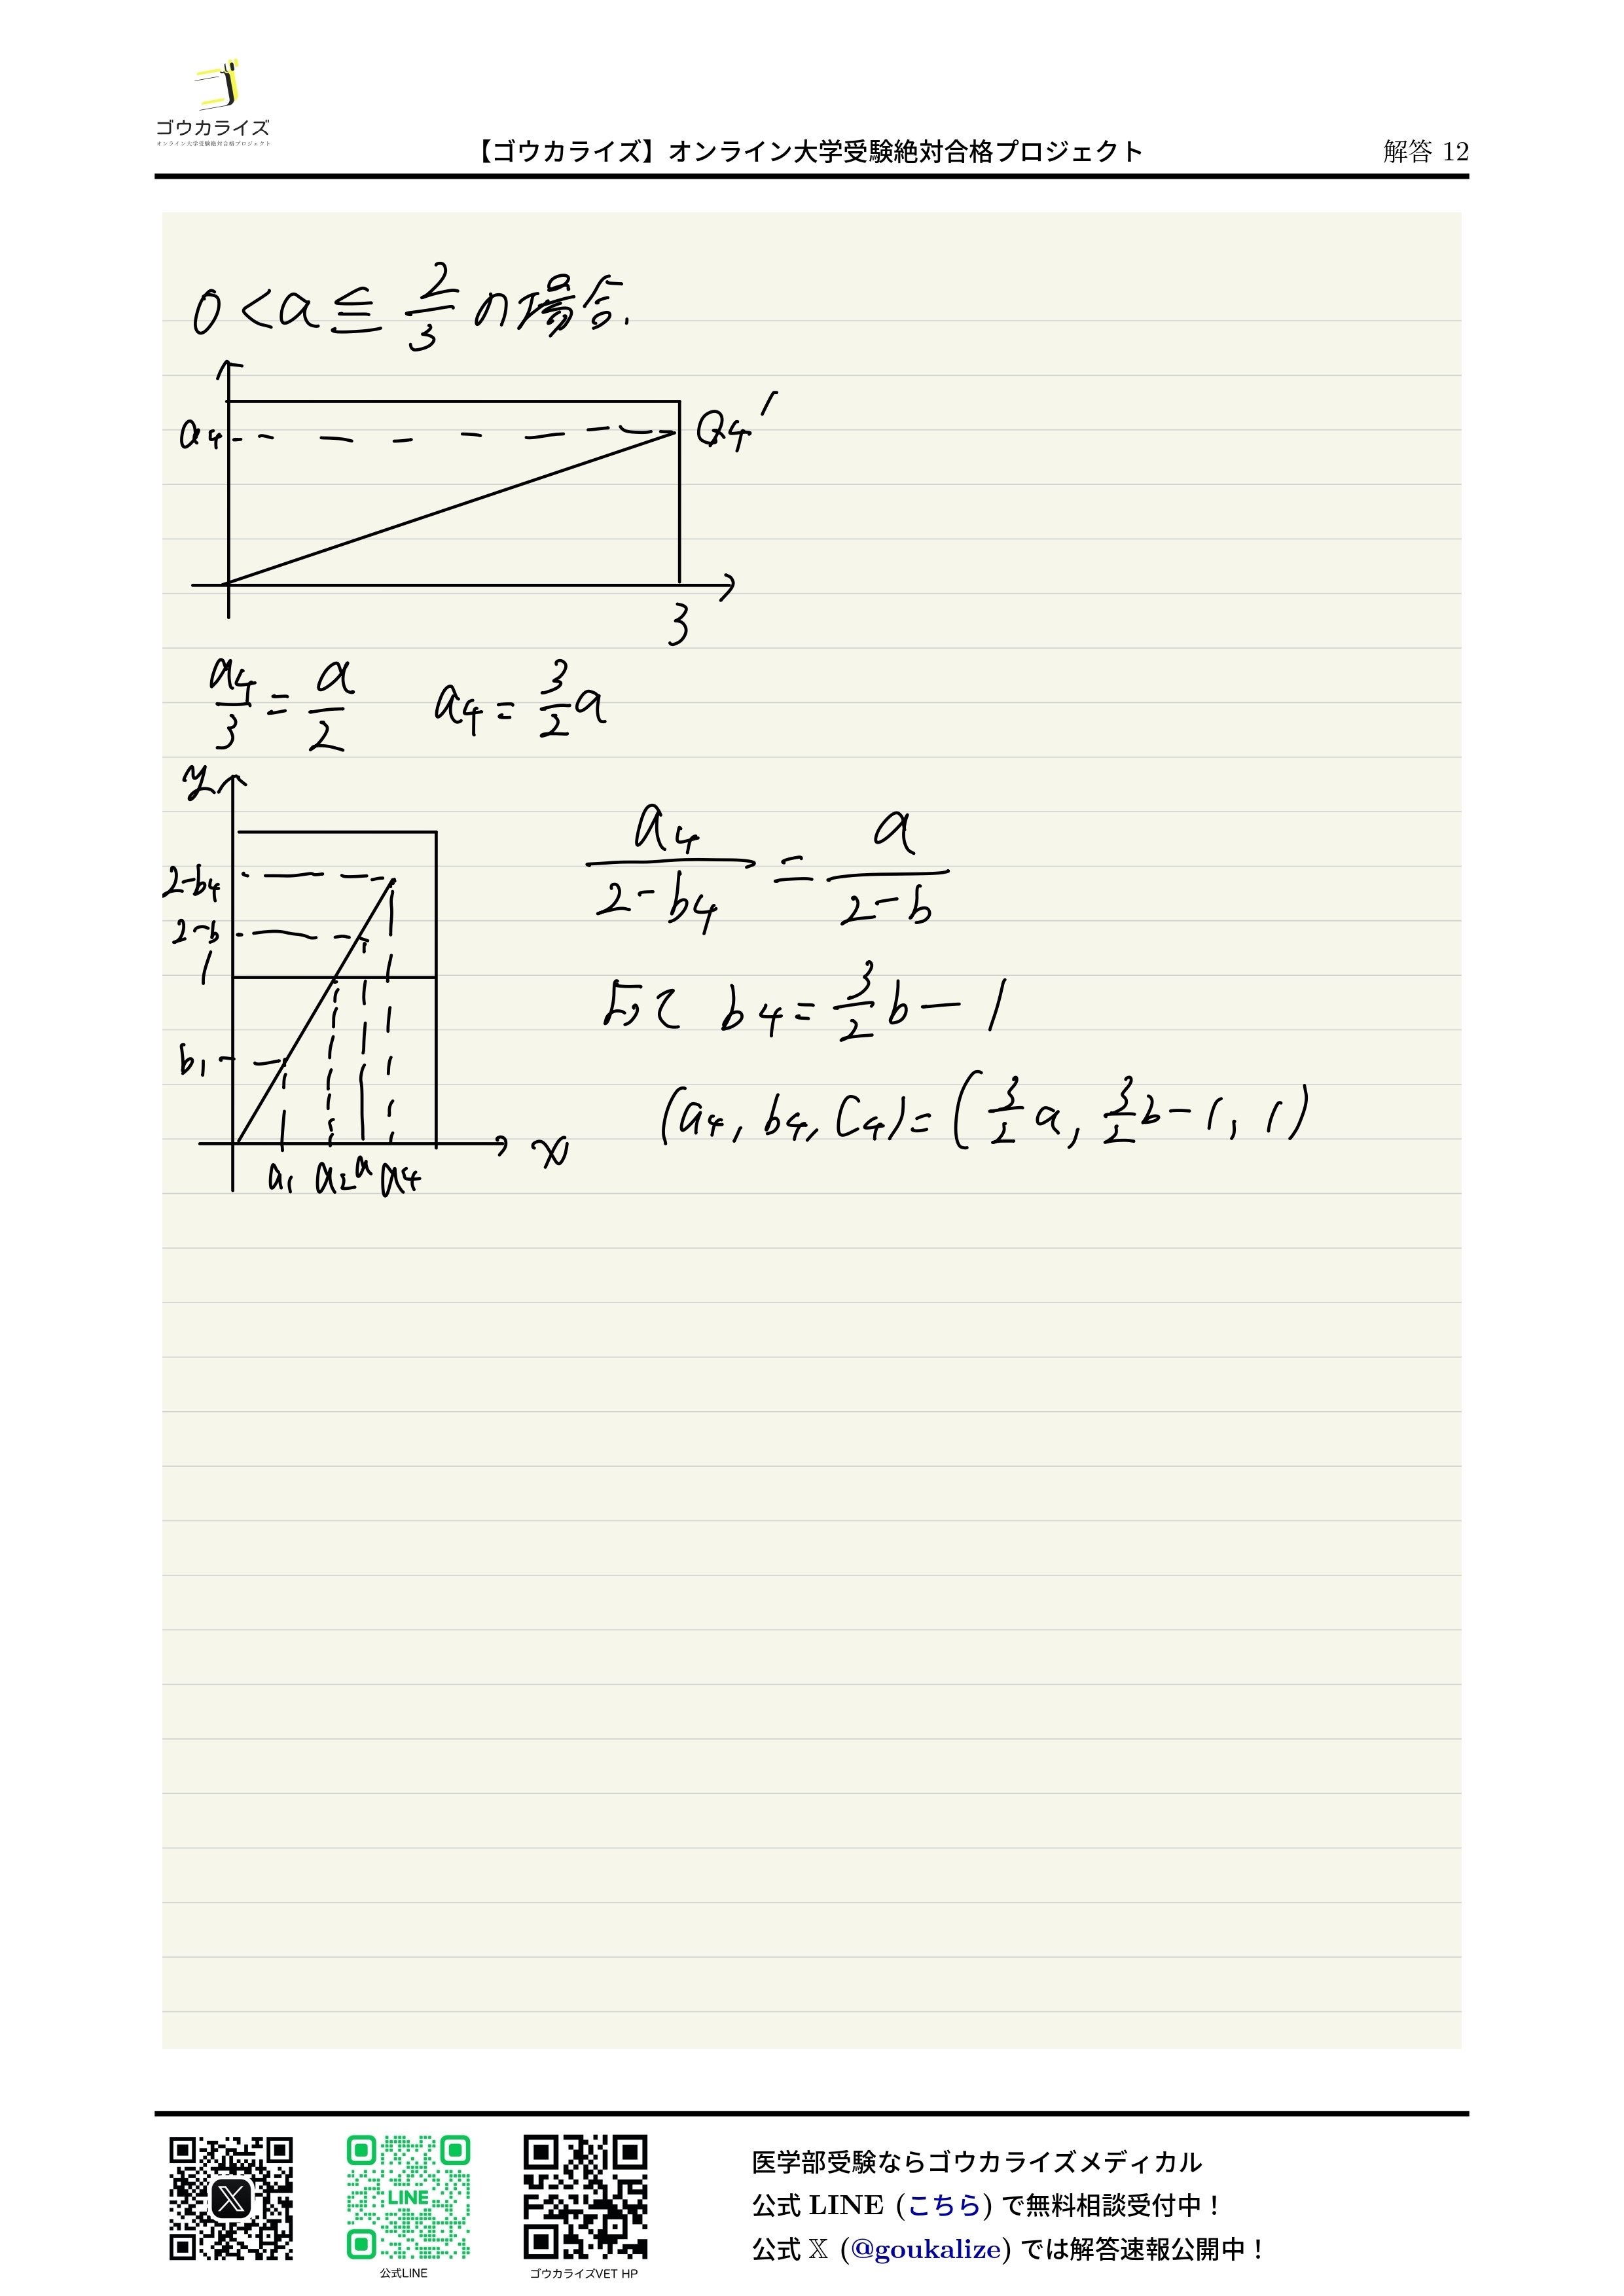 ゴウカライズ
オンライン大学受験絶対合格プロジェクト
【ゴウカライズ】オンライン大学受験絶対合格プロジェクト
解答 12
0 < a ≦ 2/3 の場合.
a4
Q4'
3
a4/3 = a/2 a4 = 3/2 a
y
2-b4
2-b
1
b1
a1 a2 a a4
x
a4/(2-b4) = a/(2-b)
よって b4 = 3/2 b - 1
(a4, b4, C4) = (3/2 a, 3/2 b - 1, 1)
LINE
公式LINE
ゴウカライズVET HP
医学部受験ならゴウカライズメディカル
公式 LINE (こちら) で無料相談受付中！
公式 𝕏 (@goukalize) では解答速報公開中！